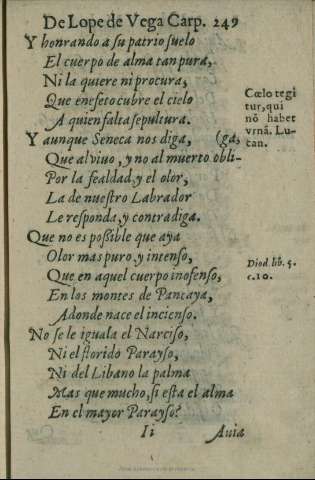 De Lope de Vega Carp. 249
Y honrando a su patrio suelo
El cuerpo de alma tan pura,
Ni la quiere ni procura,
Que en efeto cubre el cielo
A quien falta sepultura.
Cœlo tegi
tur, qui
nõ habet
vrnã. Lu-
can.
Y aunque Seneca nos diga, (ga,
Que al viuo, y no al muerto obli-
Por la fealdad, y el olor,
La de nuestro Labrador
Le responda, y contradiga.
Que no es possible que aya
Olor mas puro, y intenso,
Que en aquel cuerpo inofenso,
En los montes de Pancaya,
Adonde nace el incienso.
Diod. lib. 5.
c. 10.
No se le iguala el Narciso,
Ni el florido Parayso,
Ni del Libano la palma
Mas que mucho, si esta el alma
En el mayor Parayso?
Ii Auia